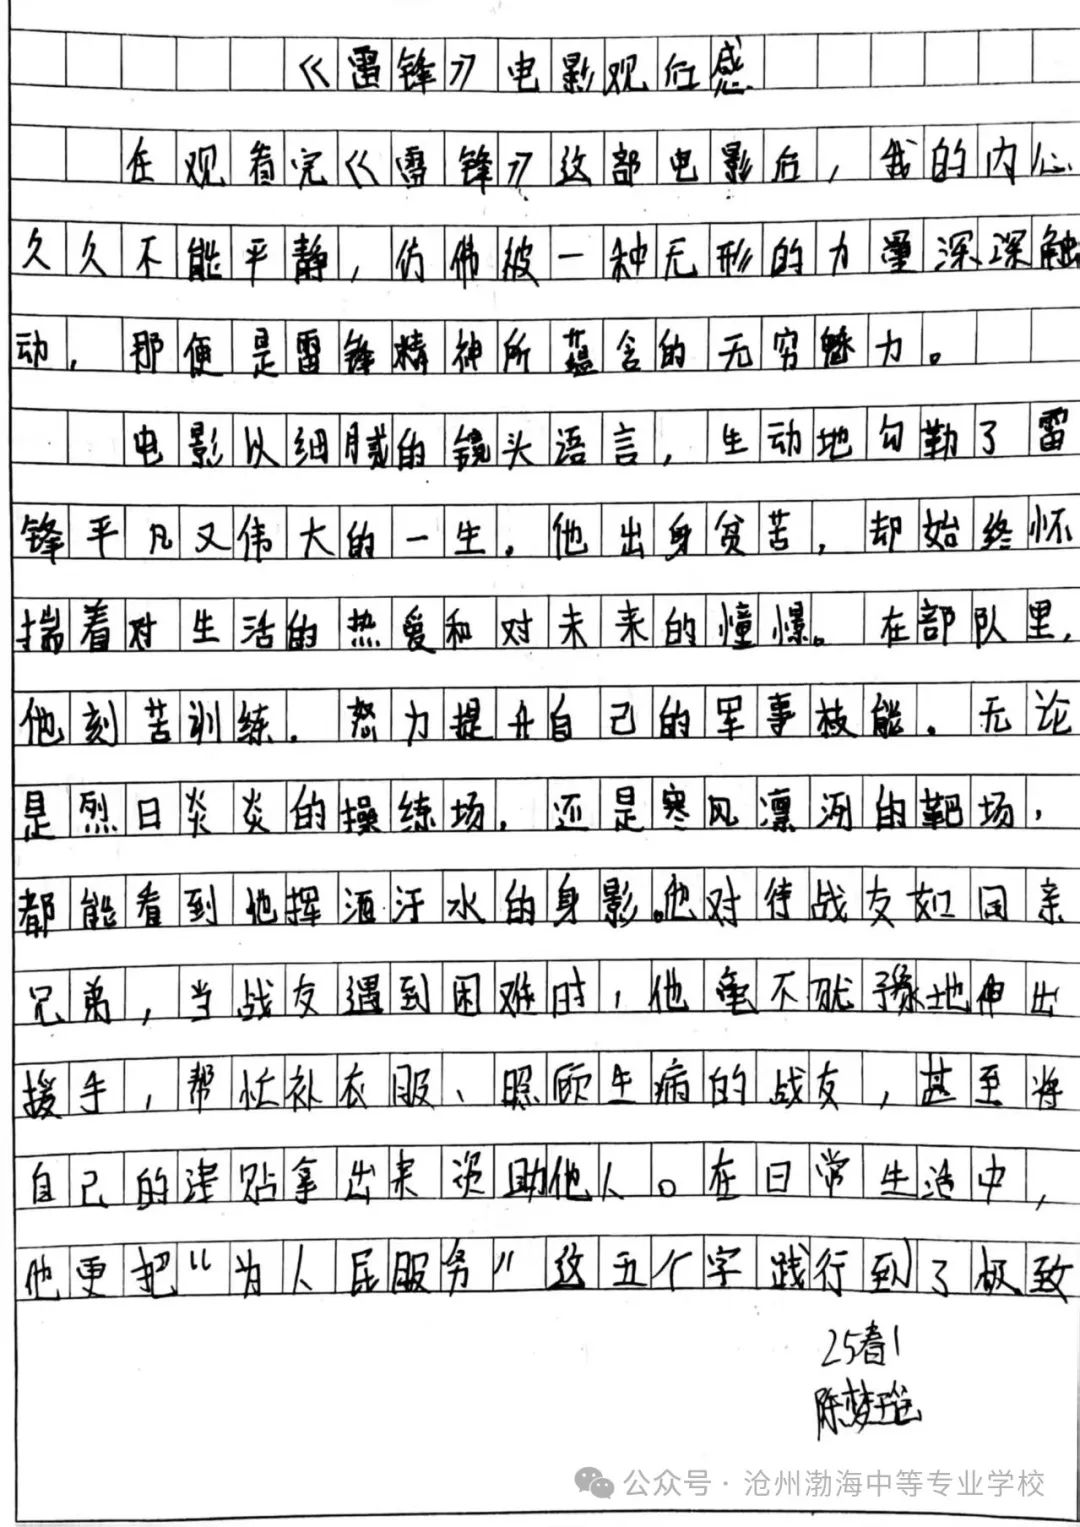 《雷锋》电影观后感
在观看完《雷锋》这部电影后，我的内心
久久不能平静，仿佛被一种无形的力量深深触
动，那便是雷锋精神所蕴含的无穷魅力。
电影以细腻的镜头语言，生动地勾勒了雷
锋平凡又伟大的一生。他出身贫苦，却始终怀
揣着对生活的热爱和对未来的憧憬。在部队里，
他刻苦训练．努力提升自己的军事技能．无论
是烈日炎炎的操练场，还是寒风凛冽的靶场，
都能看到他挥洒汗水的身影。他对待战友如同亲
兄弟，当战友遇到困难时，他毫不犹豫地伸出
援手，帮忙补衣服、照顾生病的战友，甚至将
自己的津贴拿出来资助他人。在日常生活中，
他更把“为人民服务”这五个字践行到了极致
25春1
陈梦
公众号·沧州渤海中等专业学校